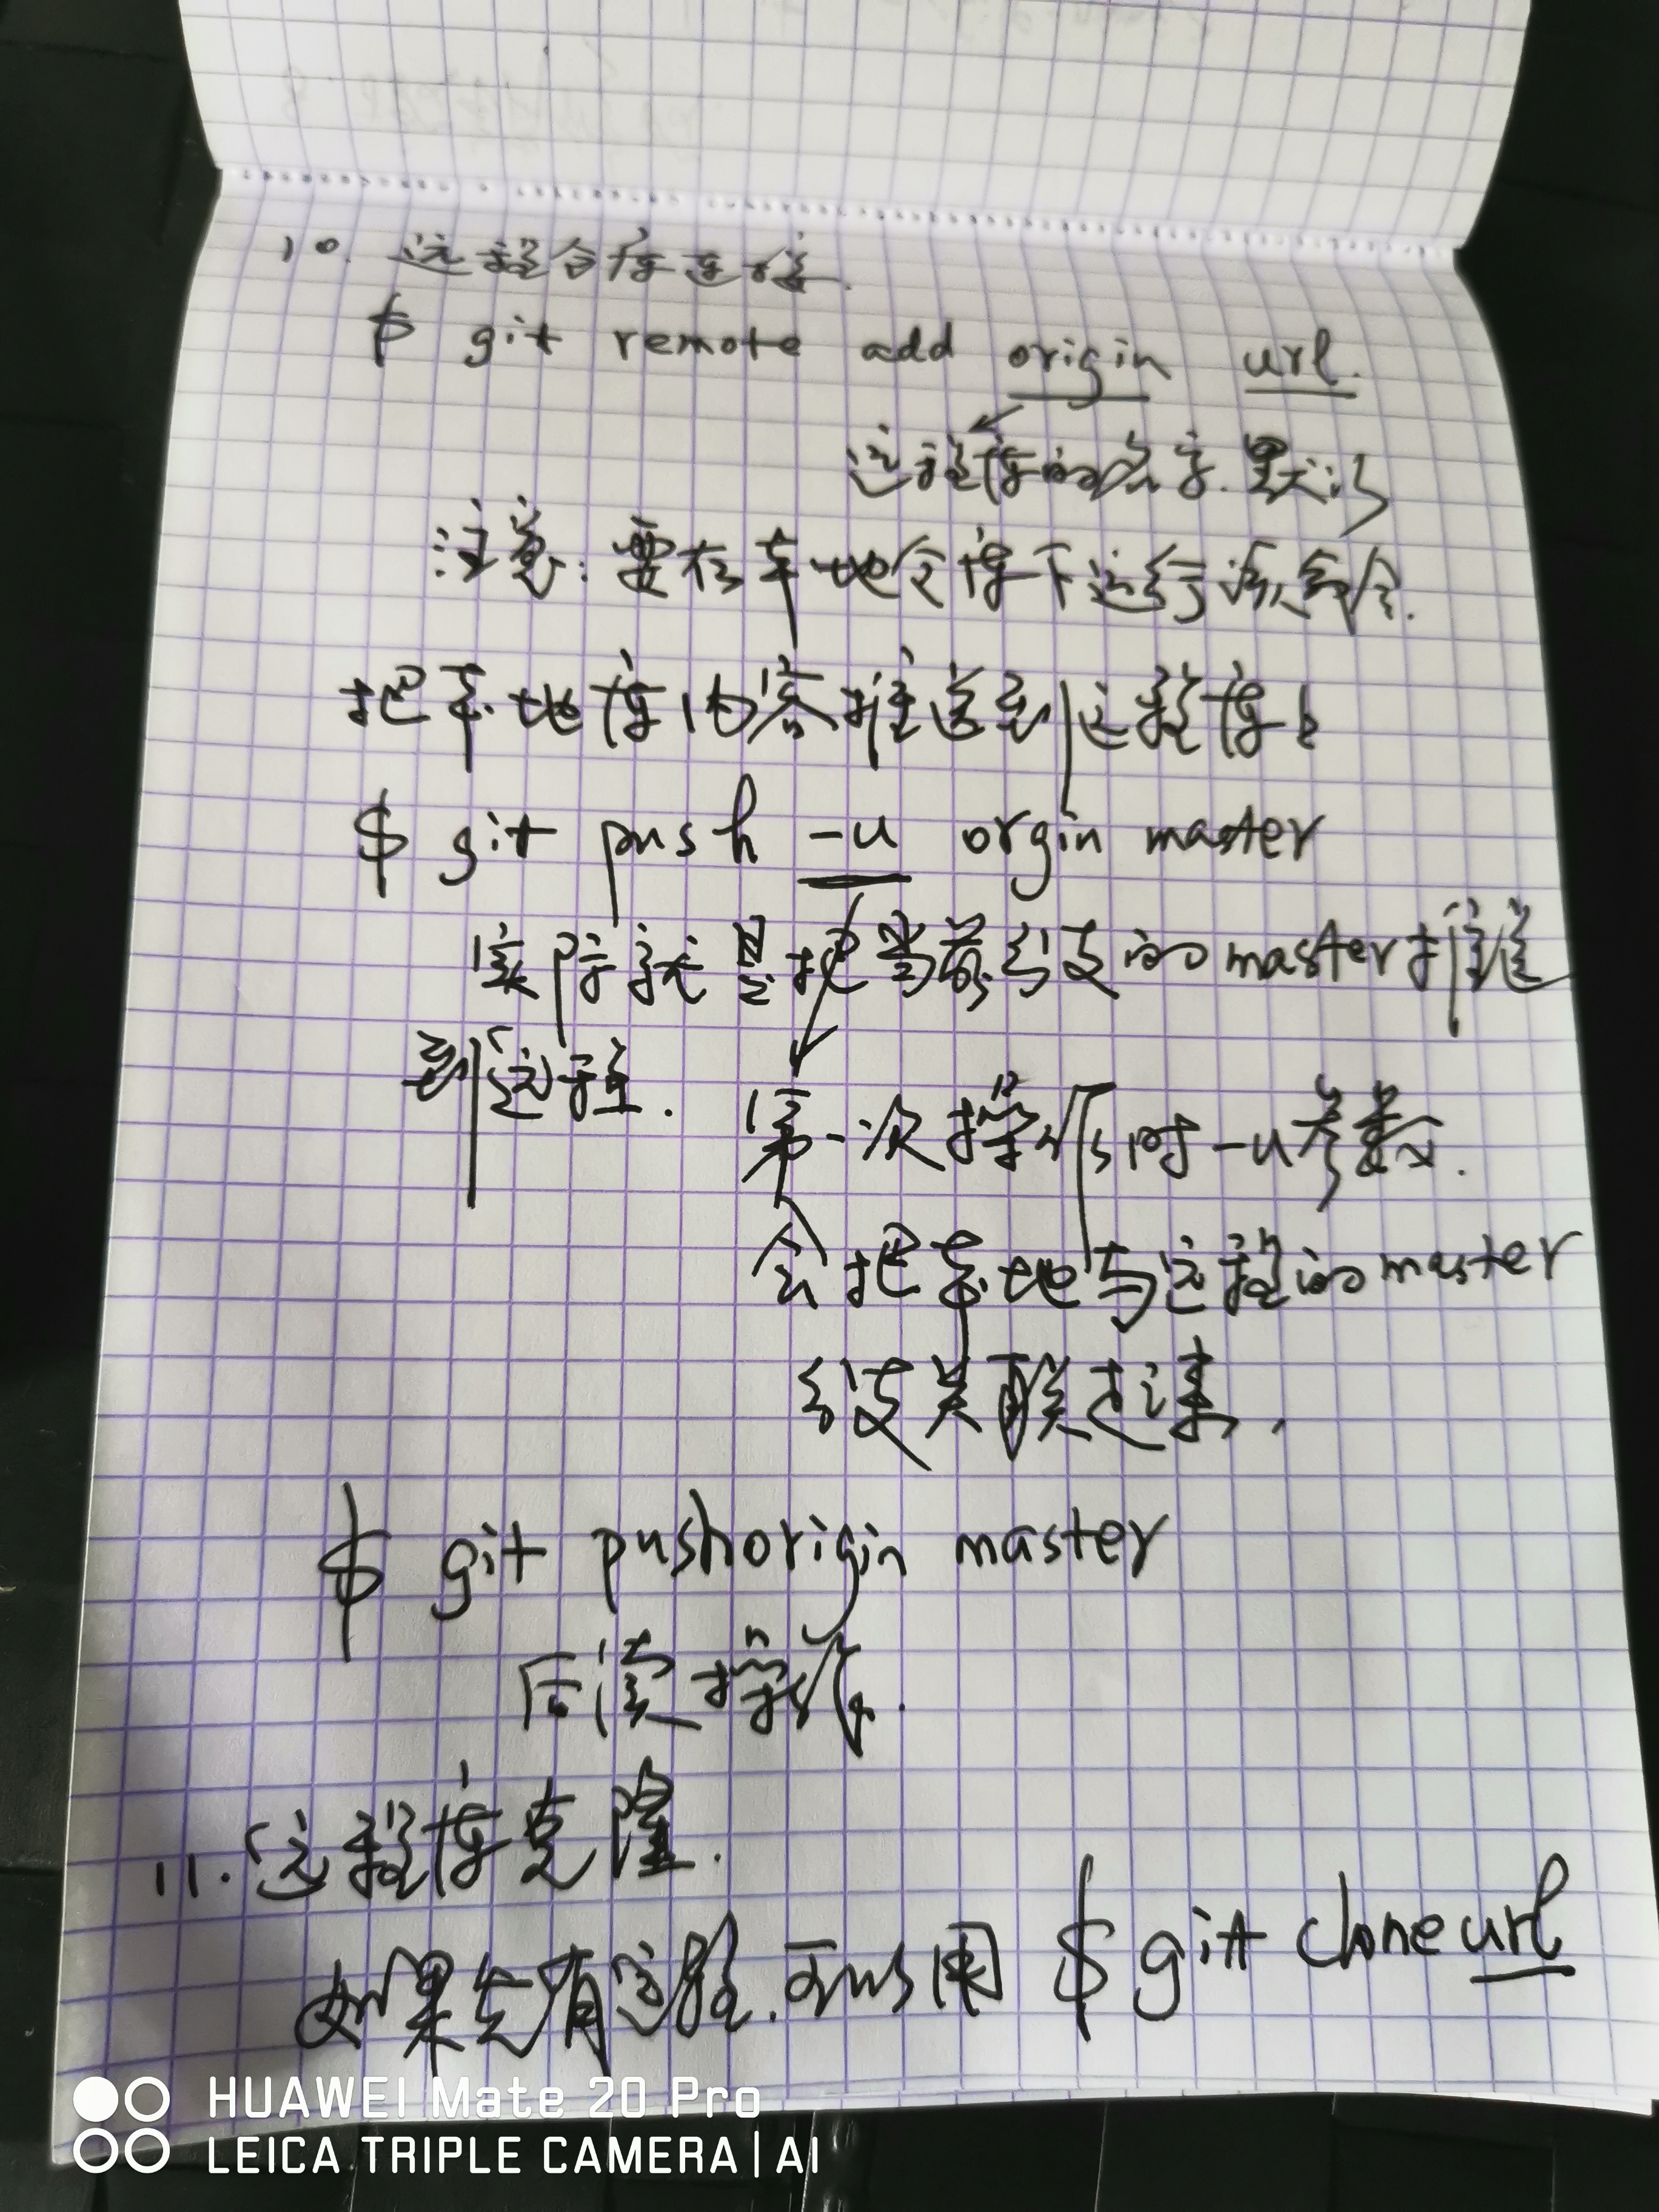 10. 远程仓库连接.
$ git remote add origin url.
远程库的名字.默认
注意:要在本地仓库下运行该命令.
把本地库内容推送到远程库上
$ git push -u orgin master
实际就是把当前分支的master推送
到远程.
第一次推的时 -u参数.
会把本地与远程的master
分支关联起来,
$ git push origin master
后续推的.
11.远程库克隆.
如果先有远程.可以用 $ git clone url
HUAWEI Mate 20 Pro
LEICA TRIPLE CAMERA | AI